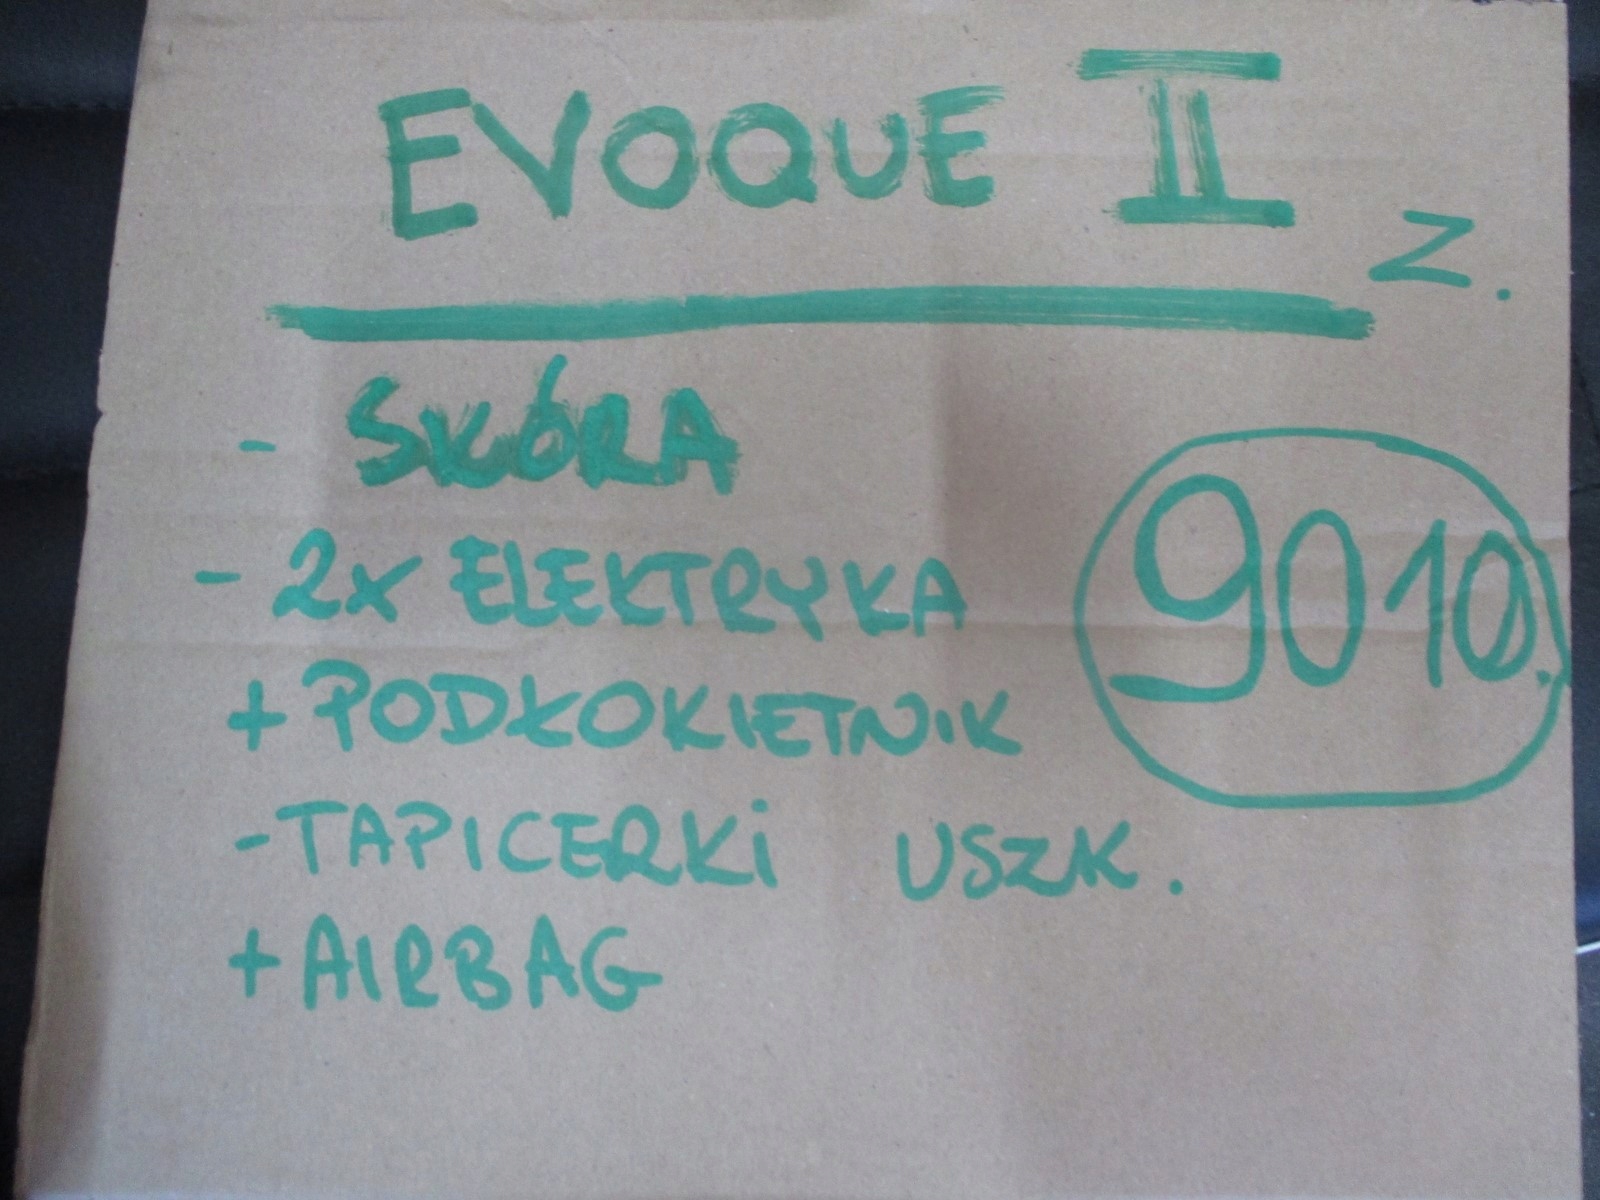 EVOQUE II
Z.
- SKÓRA
- 2x ELEKTRYKA
9010.
+ PODŁOKIETNIK
- TAPICERKI USZK.
+ AIRBAG